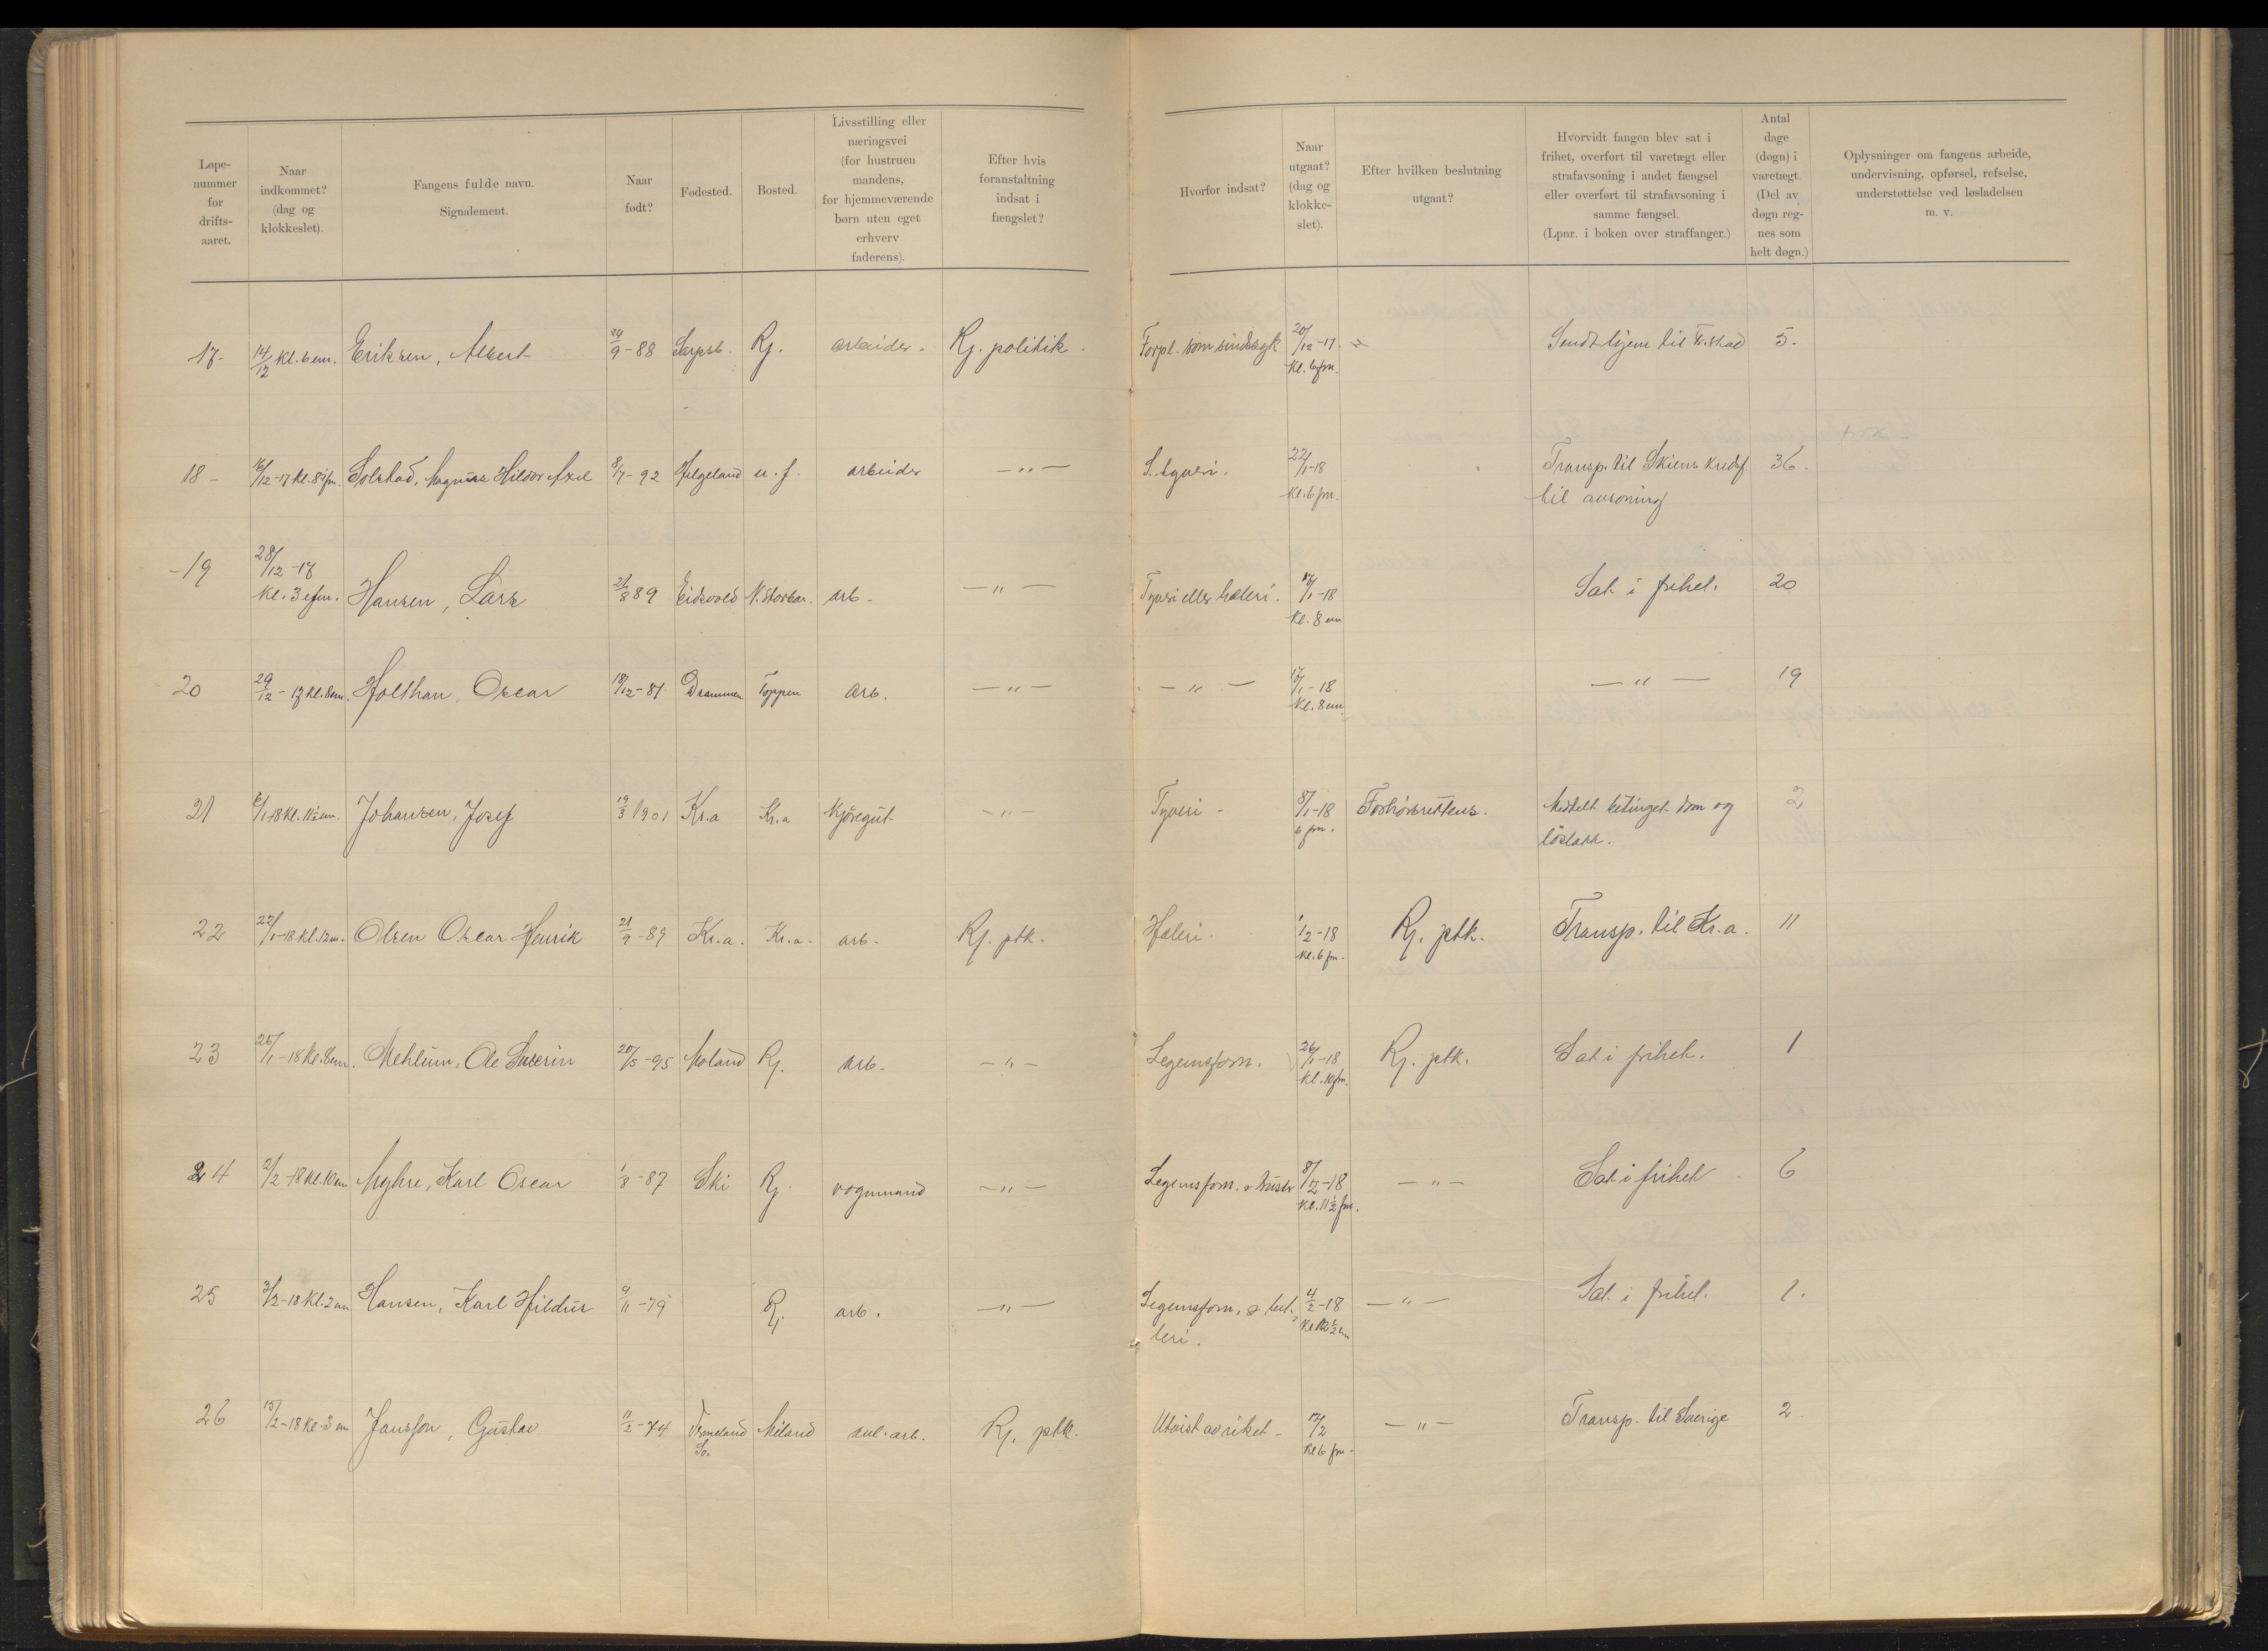 Løpe-
nummer
for
drifts-
aaret.
Naar
indkommet?
(dag og
klokkeslet).
Fangens fulde navn.
Signalement.
Naar
født?
Fødested.
Bosted.
Livsstilling eller
næringsvei
(for hustruen
mandens,
for hjemmeværende
børn uten eget
erhverv
faderens).
Efter hvis
foranstaltning
indsat i
fængslet?
Hvorfor indsat?
Naar
utgaat?
(dag og
klokke-
slet).
Efter hvilken beslutning
utgaat?
Hvorvidt fangen blev sat i
frihet, overført til varetægt eller
strafavsoning i andet fængsel
eller overført til strafavsoning i
samme fængsel.
(Lpnr. i boken over straffanger.)
Antal
dage
(døgn) i
varetægt.
(Del av
døgn reg-
nes som
helt døgn.)
Oplysninger om fangens arbeide,
undervisning, opførsel, refselse,
understøttelse ved løsladelsen
m. v.
17- 14/12 kl. 6 em. Eriksen, Albert 24/9-88 Sarpsb. Rj. arbeider. Rj. politik. Forpl. som sindssyk 20/12-17. Sendt hjem til 5.
kl. 6 fm.
18- 16/12-17 kl. 8½ fm. Solstad, Magnus Hildor Axel 8/7-92 Helgeland u. f. arbeider —"— S. tyveri. 22/1-18 Transp. til Skiens kredsf. 36.
kl. 6 fm. til avsoning
-19 28/12-17
kl. 3 efm. Hansen, Lars 26/8 89 Eidsvold N. arb- —"— Tyveri eller hæleri. 17/1-18 Sat i frihet. 20
kl. 8 em
20 29/12-17 kl. 8 em. Holthan, Oscar 18/12-81 Drammen Toppen arb. —"— —"— 17/1-18 —"— 19
kl. 8 em
21 6/1-18 kl. 11½ em. Johansen, Josef 19/3 1901 Kr.a Kr.a kjøregut —"— Tyveri- 8/1-18 Forhørsrettens. Meddelt betinget dom og 2
6 fm. løslatt.
22 22/1-18 kl. 12 m. Olsen Oscar Henrik 21/9-89 Kr.a. Kr.a- arb- Rj. ptk. Hæleri. 1/2-18 Rj. ptk. Transp. til Kr.a. 11
kl. 6 fm.
23 25/1-18 kl. 8 em. Mehlum, Ole Severin 20/5-95 Moland Rj. arb- —"— Legemsforn. 26/1-18 Rj. ptk. Sat i frihet. 1
kl. 10 fm.
24 2/2-18 kl. 10 em Myhre, Karl Oscar 1/8-87 Ski Rj. vognmand —"— Legemsforn. 8/2-18 —"— Sat i frihet. 6
kl. 11½ fm.
25 3/2-18 kl. 2 em Hansen, Karl Hildur 9/11-79 Rj. arb. —"— Legemsforn. & bet- 4/2-18 —"— Sat i frihet. 1.
leri.
26 15/2-18 kl. 3 em Jansson, Gustav 11/2-74 Vermeland Miland anl. arb. Rj. ptk. Utvist av riket- 17/2 —"— Transp. til Sverige 2.
Sv. kl 6 fm-